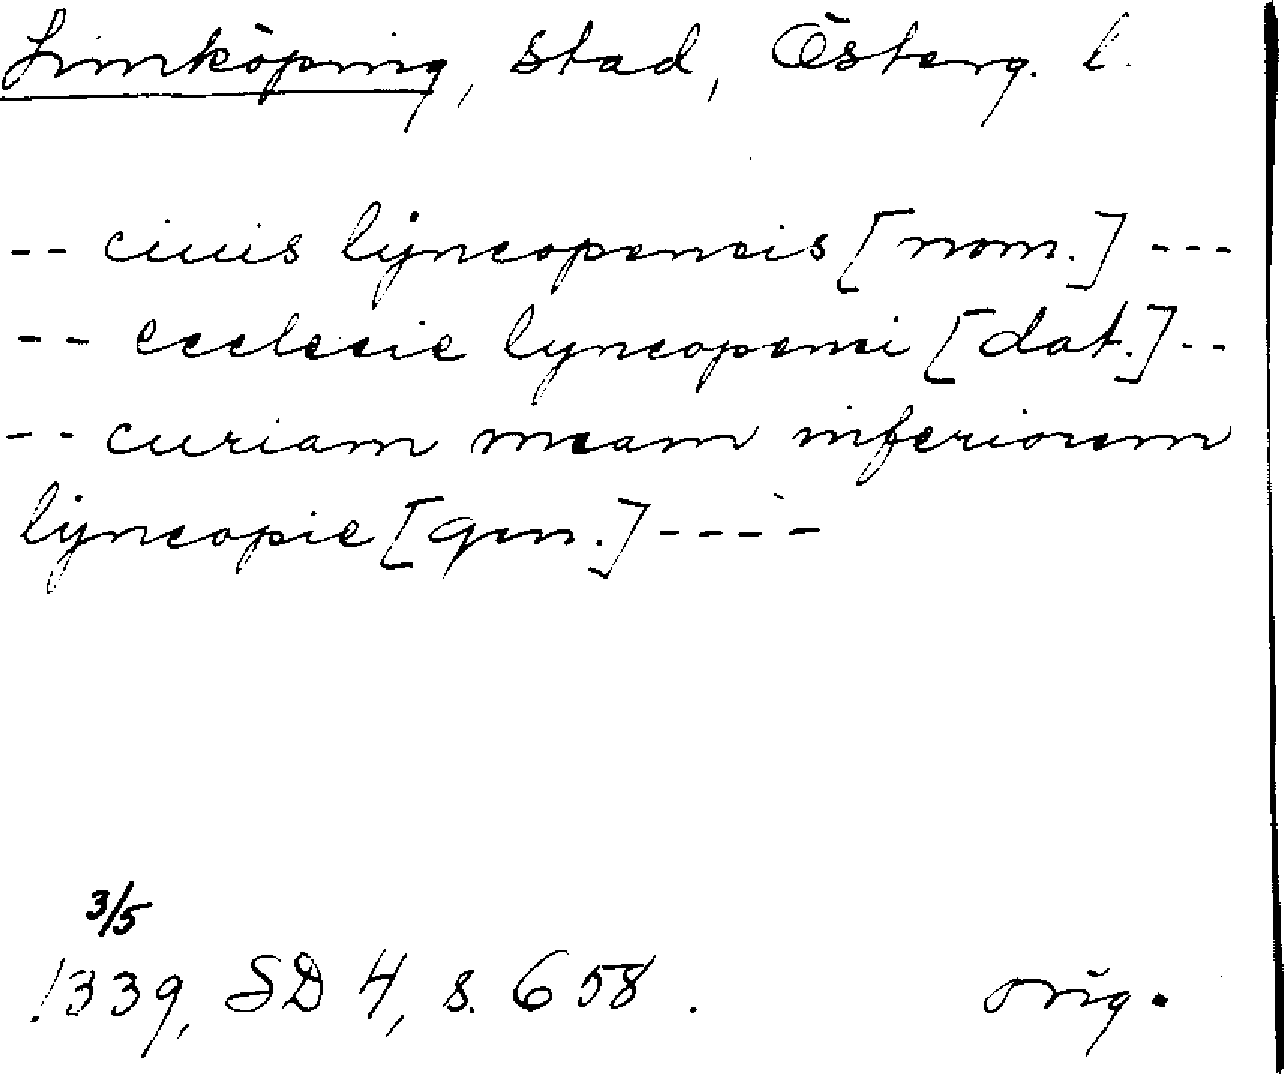 Linköping, stad, Österg. l.
-- ciuis lyncopensis [nom.] ---
-- ecclesie lyncopensi [dat.] --
-- curiam meam inferiorem
lyncopie [gen.] ----
3/5
1339, SD 4, s. 658. orig.